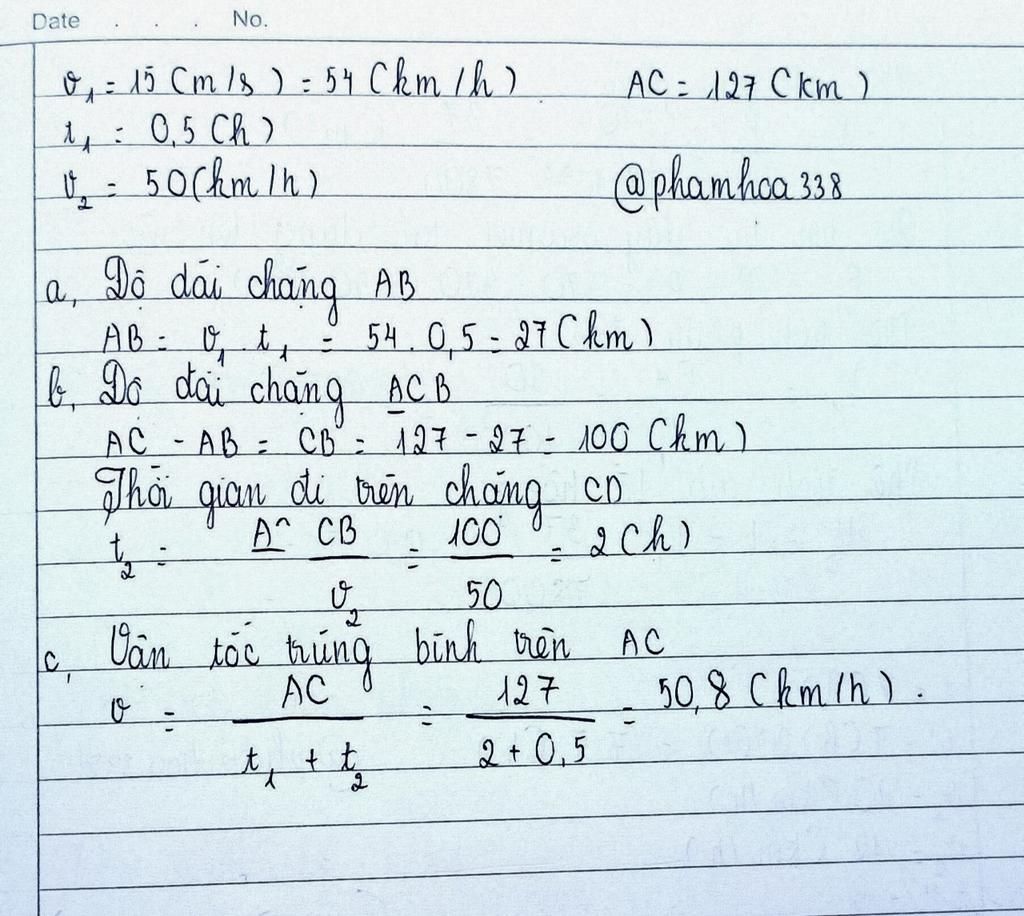 Date . . . No.
v₁ = 15 (m/s) = 54 (km/h) AC = 127 (km)
t₁ = 0,5 (h)
v₂ = 50 (km/h) @phamhoa338
a, Độ dài chặng AB
AB = v₁ . t₁ = 54 . 0,5 = 27 (km)
b, Độ dài chặng ACB
AC - AB = CB = 127 - 27 = 100 (km)
Thời gian đi trên chặng CD
t₂ = CB / v₂ = 100 / 50 = 2 (h)
c, Vận tốc trung bình trên AC
v = AC / t₁ + t₂ = 127 / 2 + 0,5 = 50,8 (km/h) .